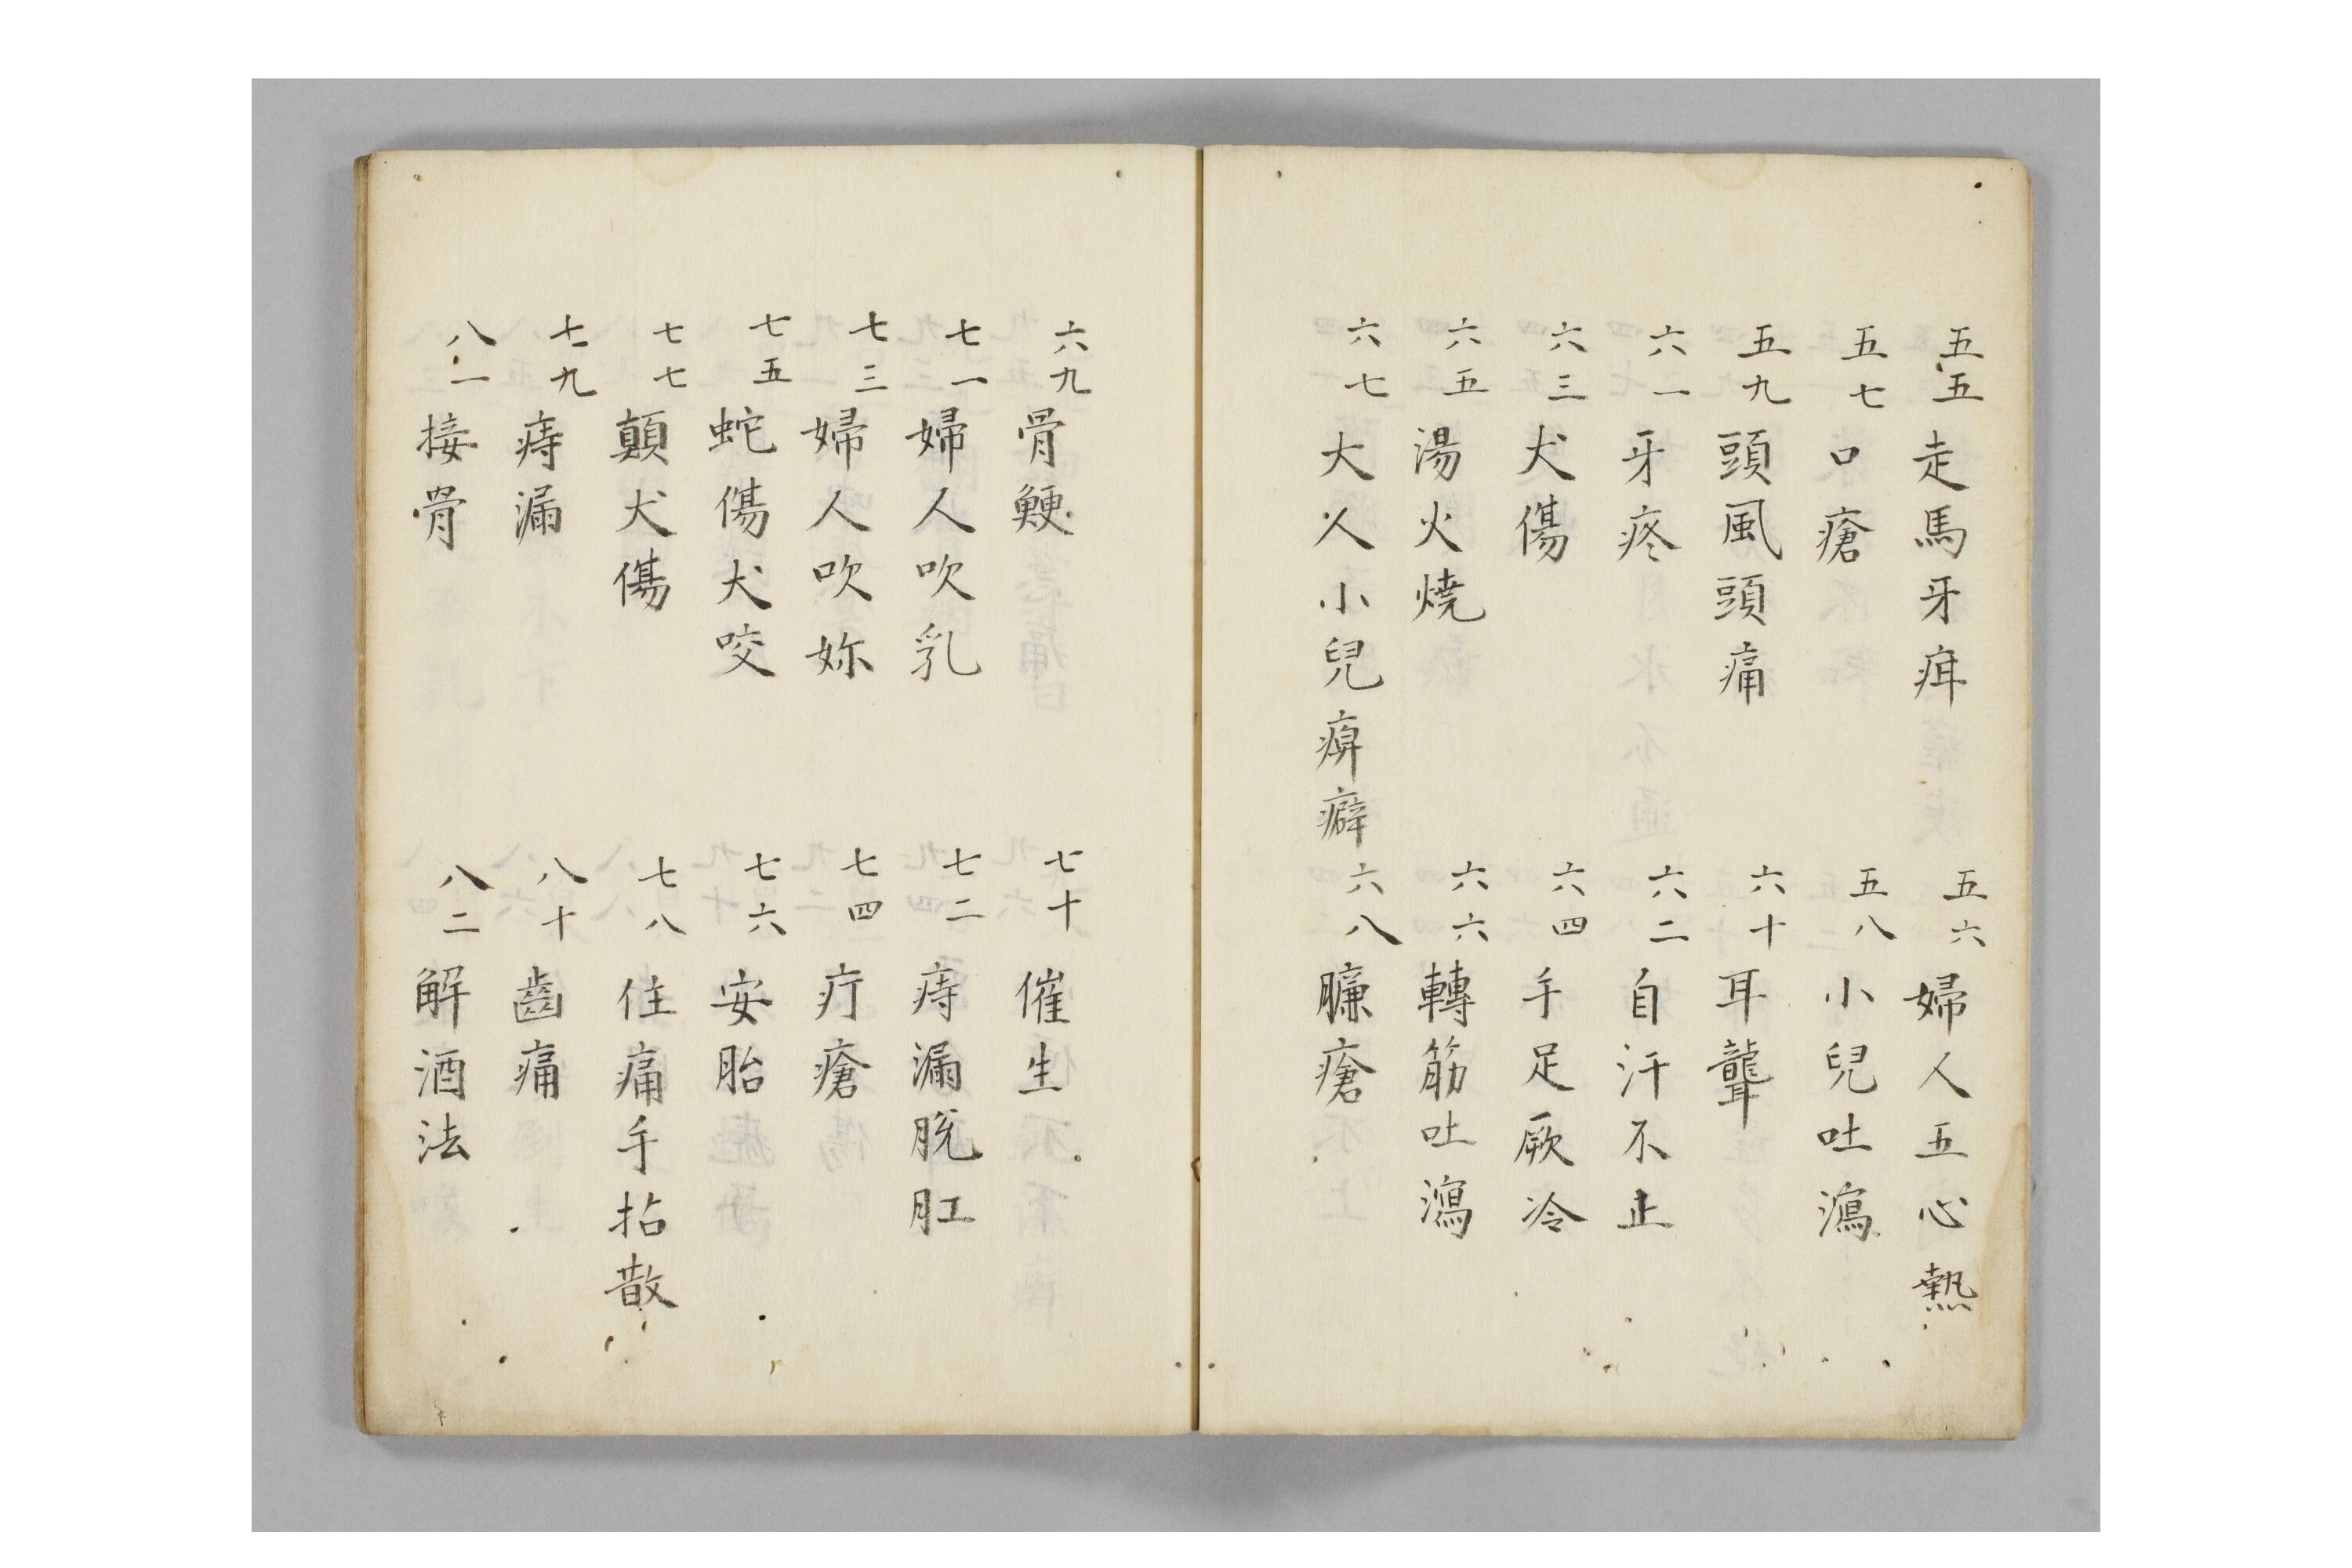 五五走馬牙疳
五六婦人五心熱
五七口瘡
五八小兒吐瀉
五九頭風頭痛
六十耳聾
六一牙疼
六二自汗不止
六三犬傷
六四手足厥冷
六五湯火燒
六六轉筋吐瀉
六七大人小兒痹癖
六八臁瘡
六九骨鯁
七十催生
七一婦人吹乳
七二痔漏脫肛
七三婦人吹妳
七四疔瘡
七五蛇傷犬咬
七六安胎
七七顛犬傷
七八住痛手拈散
七九痔漏
八十齒痛
八一接骨
八二解酒法